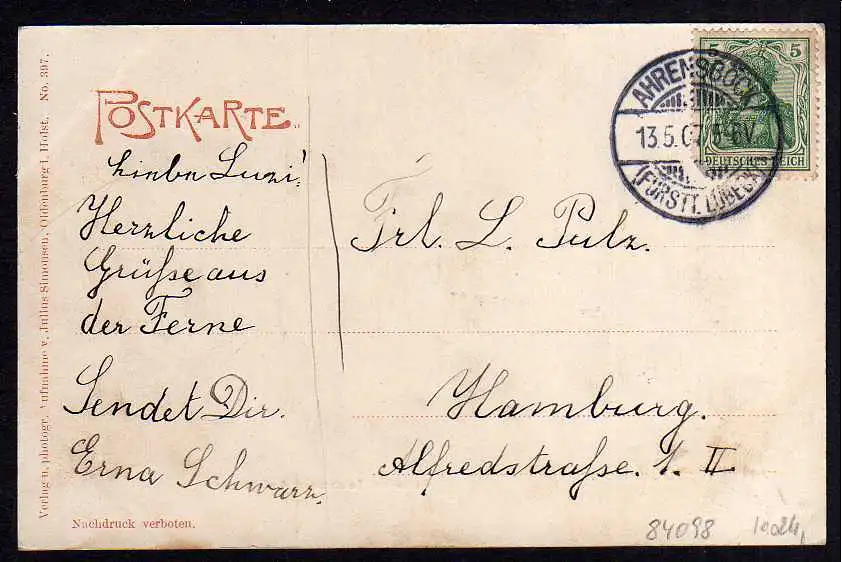 Verlag u. photogr. Aufnahme v. Julius Simonsen, Oldenburg i. Holst. No. 397.
POSTKARTE
5 5
DEUTSCHES REICH
AHRENSBÖCK
13.5.07 5-6V.
(FÜRSTT. LÜBECK)
Luzi!
Herzliche
Grüße aus
der Ferne
Sendet Dir.
Erna Schwarz.
Frl. L. Pulz.
Hamburg.
Alfredstraße. 1. II
Nachdruck verboten.
84098